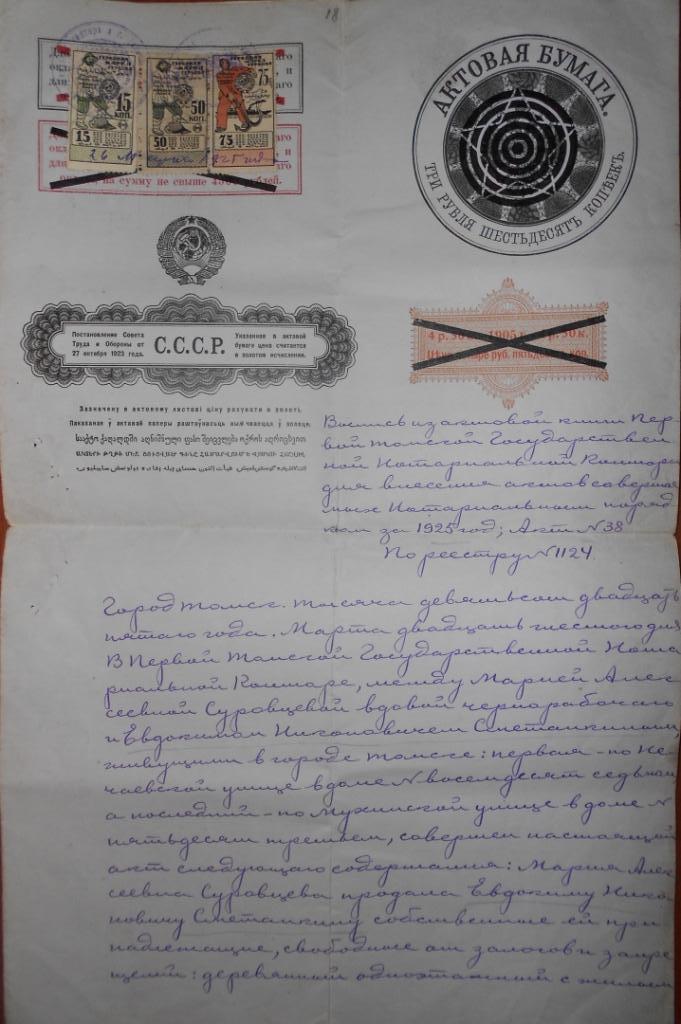 18
15 КОП. 50 КОП. 75 КОП.
15 50 75
26 Марта 1925 г.
на сумму не свыше рублей.
АКТОВАЯ БУМАГА.
ТРИ РУБЛЯ ШЕСТЬДЕСЯТЪ КОПѢЕКЪ.
Постановление Совета
Труда и Обороны от
27 октября 1923 года.
С.С.С.Р.
Указанная в актовой
бумаге цена считается
в золотом исчислении.
1905
руб. пятьдесят коп.
Зазначену в актовому аркушеві ціну рахувати в золоті.
Выпись из актовой книги Пер
вой Томской Государствен
ной Нотариальной Конторы
для внесения актов совершен
ных Нотариальным поряд
ком за 1925 год; Акт N 38
По реестру N 1124.
Город Томск. Тысяча девятьсот двадцать
пятого года. Марта двадцать шестого дня
В Первой Томской Государственной Нота
риальной Конторе, между Марией Алек
сеевной Суровцевой вдовой чернорабочего
и Евдокимом Никоновичем Сметанкиным,
живущими в городе Томске: первая - по Не
чаевской улице в доме N восемдесят седьмом
а последний - по Мухинской улице в доме N
пятьдесят третьем, совершен настоящий
акт следующего содержания: Мария Алек
сеевна Суровцева продала Евдокиму Нико
новичу Сметанкину собственные ей при
надлежащие, свободные от залогов и запре
щений: деревянный одноэтажный с жилым